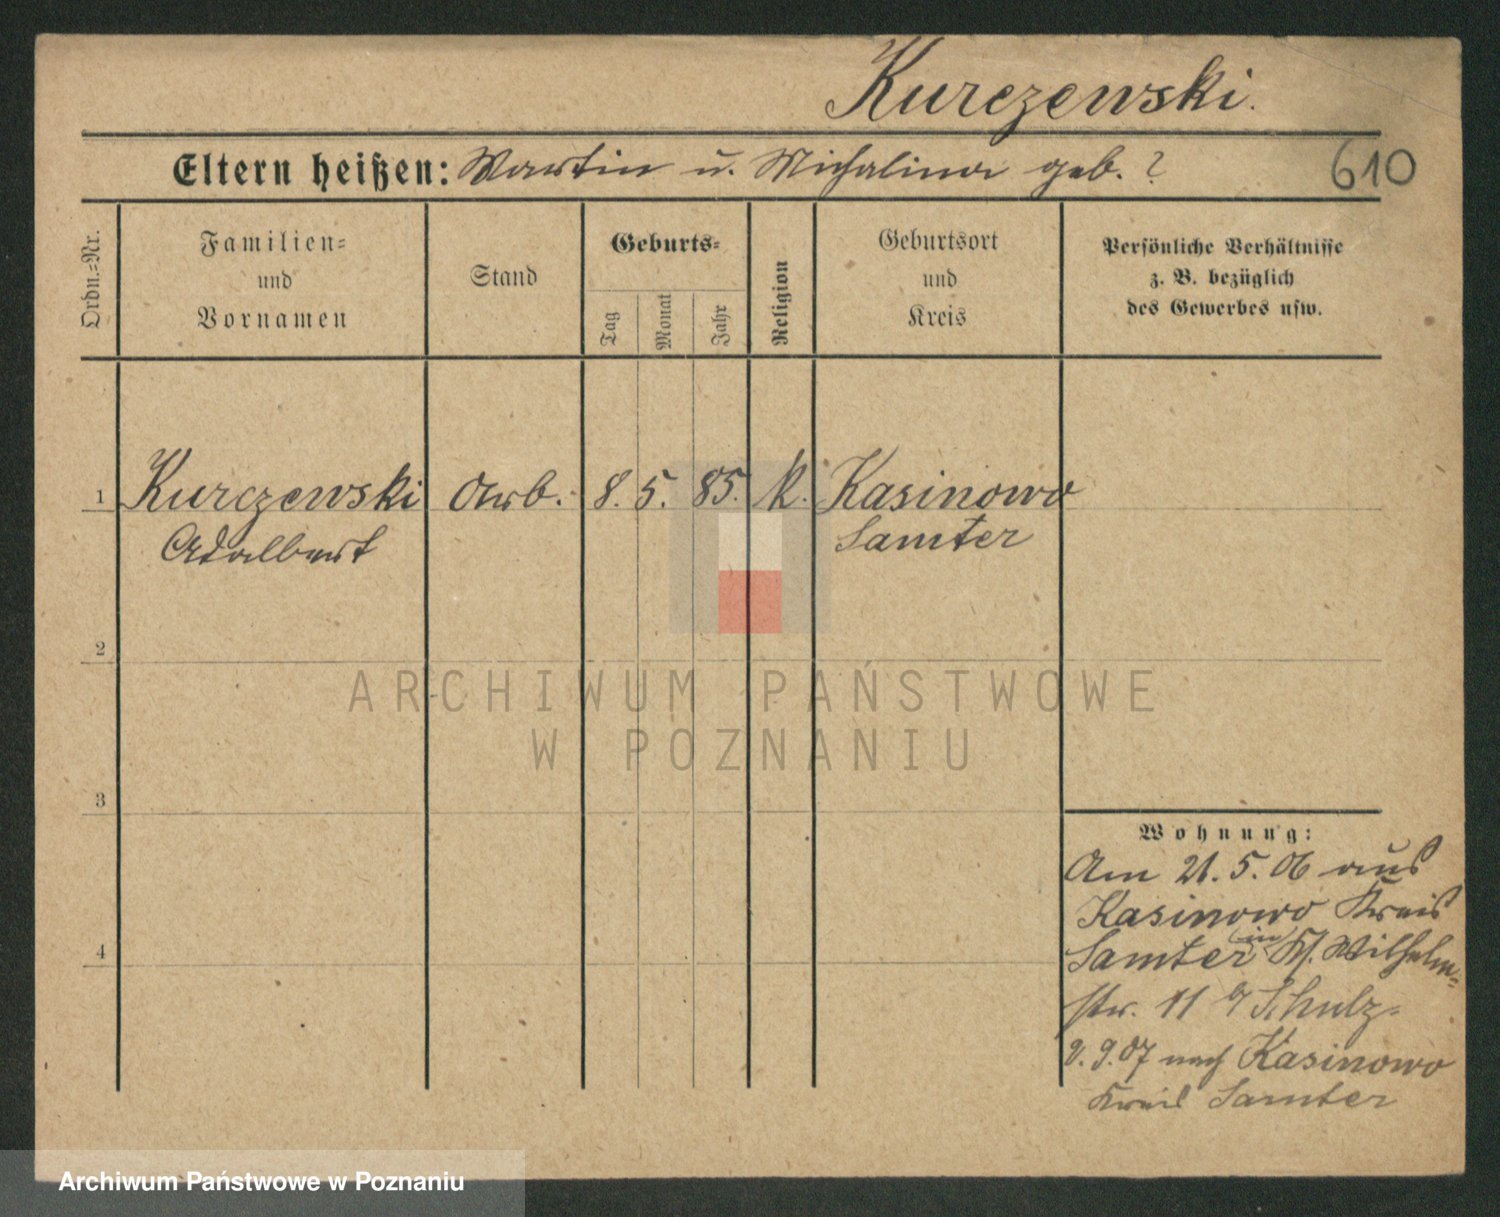 Kurczewski.
Eltern heißen: Martin u. Michalina geb. ?
610
Ordn.=Nr.
Familien=
und
Vornamen
Stand
Geburts=
Tag
Monat
Jahr
Religion
Geburtsort
und
Kreis
Persönliche Verhältnisse
z. B. bezüglich
des Gewerbes usw.
1 Kurczewski Arb. 8. 5. 85. k. Kasinowo
Adalbert Samter
2
3
4
Wohnung:
Am 21. 5. 06 aus
Kasinowo Kreis
Samter in Kl. Wilhelm-
str. 11 b/ Schulz-
9. 9. 07 nach Kasinowo
Kreis Samter
ARCHIWUM PAŃSTWOWE
W POZNANIU
Archiwum Państwowe w Poznaniu